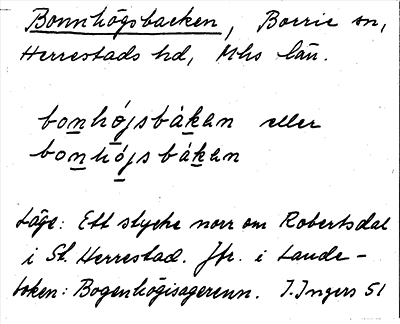 Bonnhögsbacken, Borrie sn,
Herrestads hd, Mhs län.
bonhójsbákan eller
bonhójsbákan
Läge: Ett stycke norr om Robertsdal
i St. Herrestad. Jfr. i Lunde-
boken: Bogenhögisagerenn. I. Ingers 51